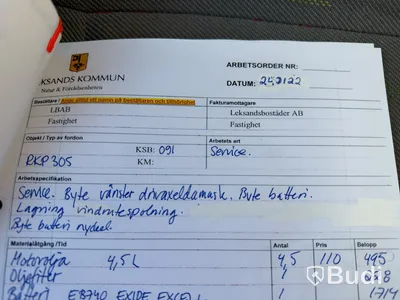 KSANDS KOMMUN
Natur & Fritidsenheten
ARBETSORDER NR:
DATUM: 250122
Beställare / Ange alltid ett namn på beställaren och tillhörighet
Fakturamottagare
LBAB
Leksandsbostäder AB
Fastighet
Fastighet
Objekt / Typ av fordon
KSB: 091
Arbetets art
RKP305
KM:
Service.
Arbetsspecifikation
Service. Byte vänster drivaxeldamask. Byte batteri.
Lagning vindrutespolning.
Byte batteri nyckel.
Materialåtgång /Tid
Antal
Pris
Belopp
Motorolja 4,5L 4,5 110 495
Oljefilter 1
Batteri EB740 EXIDE EXCELL 1 1714
Budi